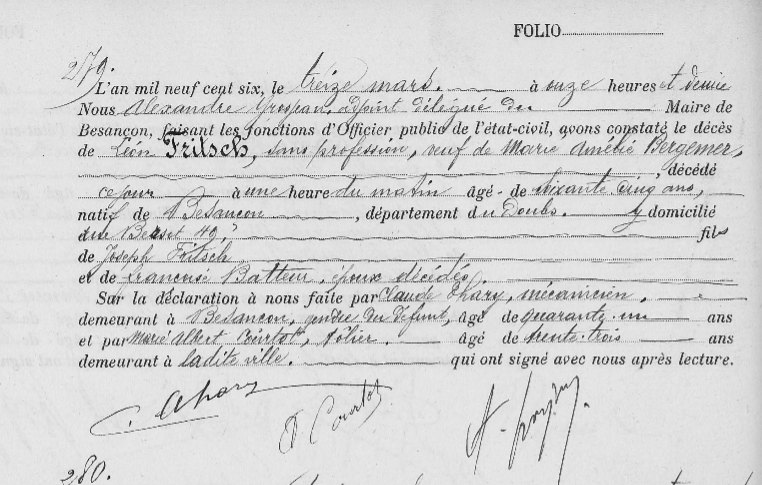 FOLIO
279.
L'an mil neuf cent six, le treize mars. à onze heures et demie
Nous Alexandre Grospan, adjoint délégué du Maire de
Besançon, faisant les fonctions d'Officier public de l'état-civil, avons constaté le décès
de Léon Fritsch, sans profession, veuf de Marie Amélie Bergemer,
, décédé
ce jour à une heure du matin âgé de soixante cinq ans,
natif de Besançon, département du Doubs. y domicilié
rue Bersot 49, fils
de Joseph Fritsch
et de françoise Batteur, époux décédés.
Sur la déclaration à nous faite par Claude Chary, mécanicien.
demeurant à Besançon, gendre du défunt, âgé de quarante-un ans
et par Marie Albert Courtot, tôlier. âgé de trente-trois ans
demeurant à ladite ville. qui ont signé avec nous après lecture.
C. Chary
A Courtot
280.